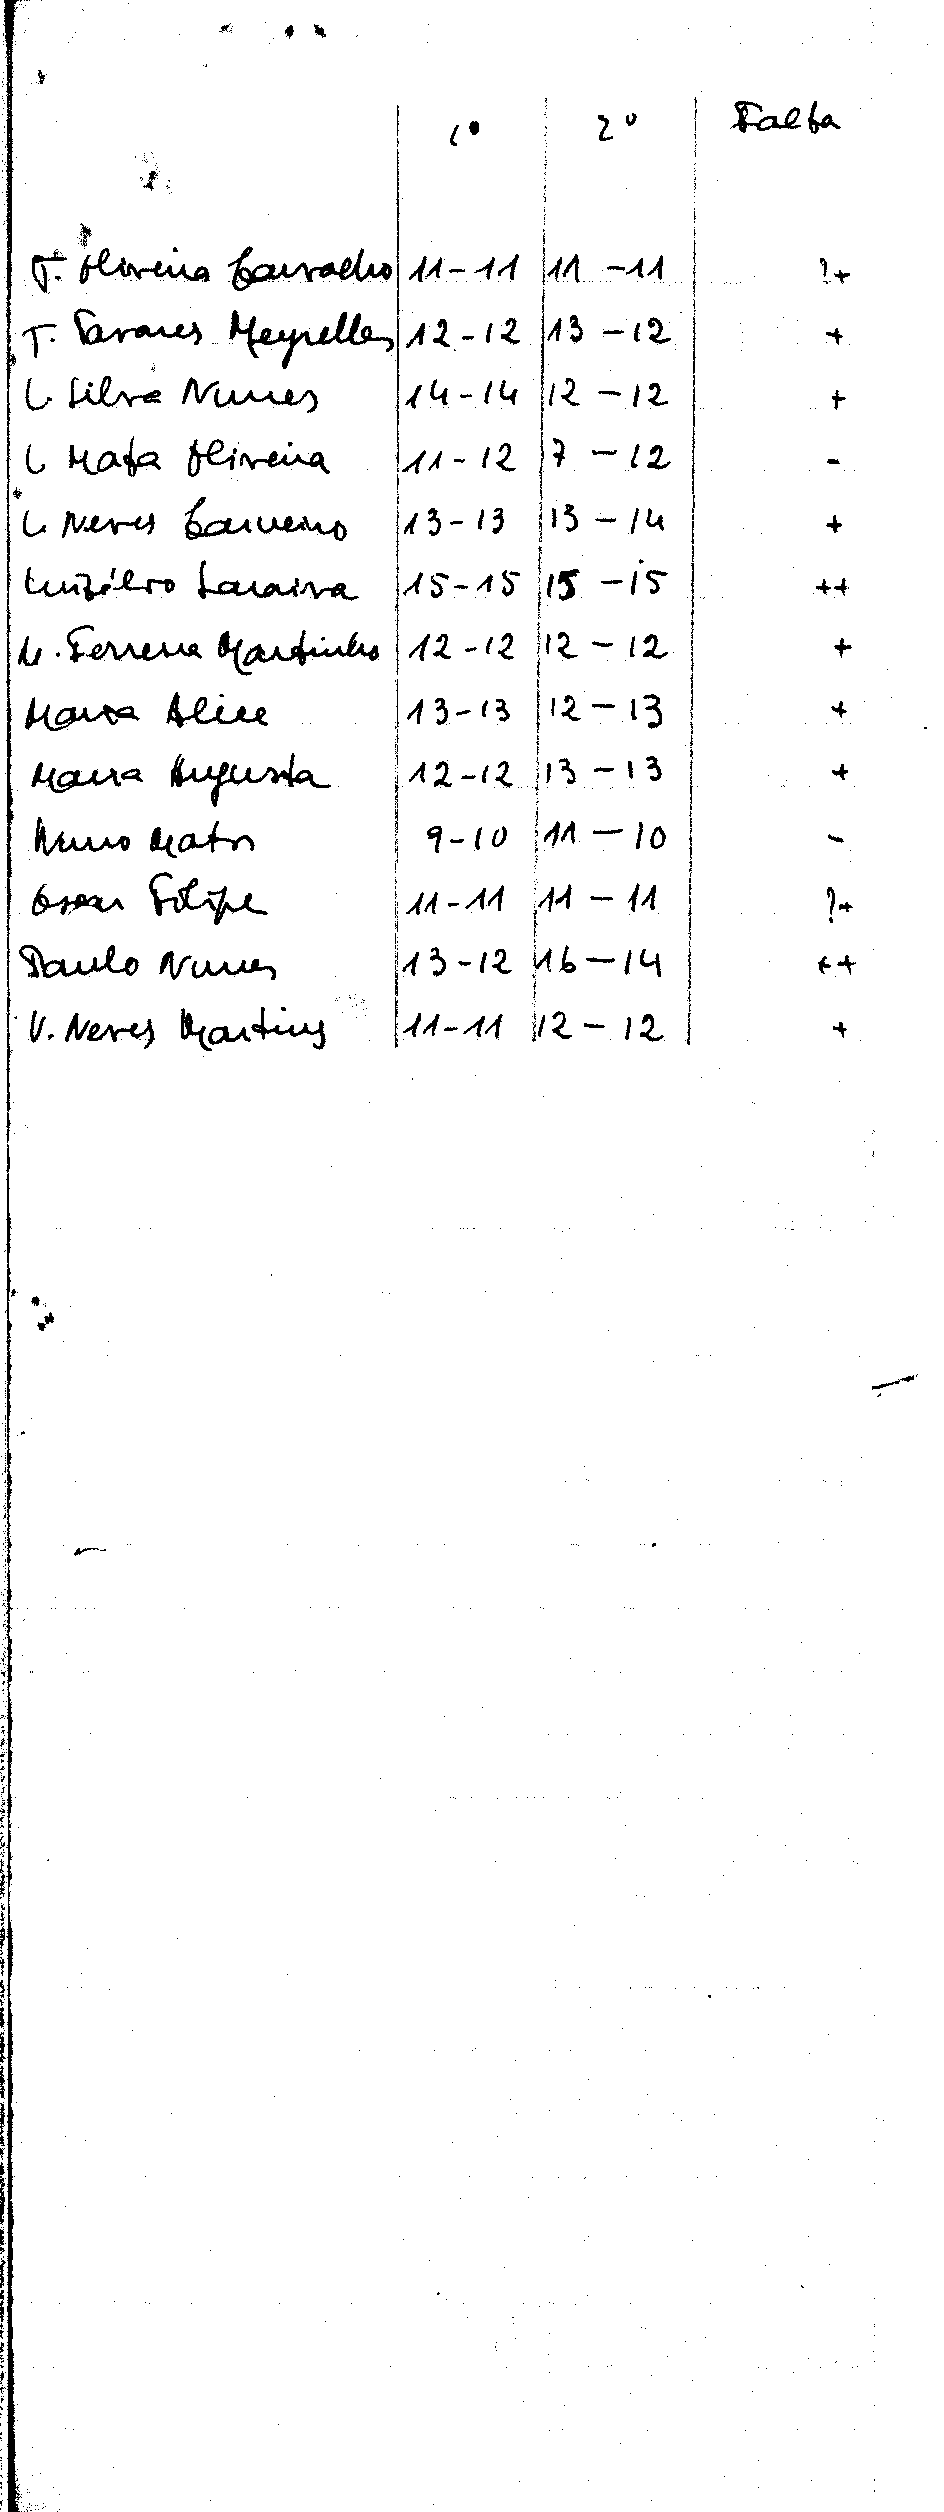 1º 2º Falta
J. Oliveira Carvalho 11-11 11-11 ?+
J. Tavares Meyrelles 12-12 13-12 +
L. Silva Nunes 14-14 12-12 +
L Mata Oliveira 11-12 7-12 -
L. Neves Carneiro 13-13 13-14 +
Luzílvio Saraiva 15-15 15-15 ++
M. Ferreira Martinho 12-12 12-12 +
Maria Alice 13-13 12-13 +
Maria Augusta 12-12 13-13 +
Nuno Matos 9-10 11-10 -
Oscar Filipe 11-11 11-11 ?+
Paulo Nunes 13-12 16-14 ++
V. Neves Martins 11-11 12-12 +